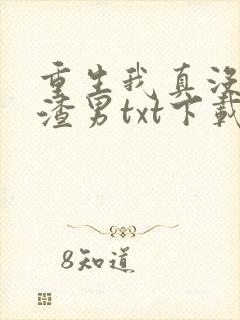 重生我真没
渣男txt下载
8知道